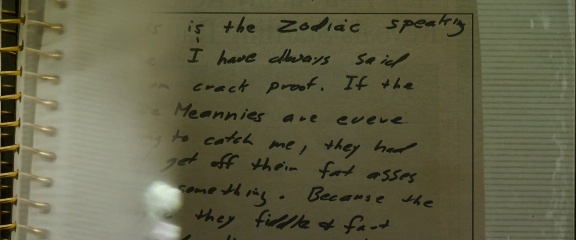 is the Zodiac speaking
I have always said
crack proof. If the
Meannies are eveve
to catch me, they had
get off their fat asses
something. Because the
they fiddle & fart